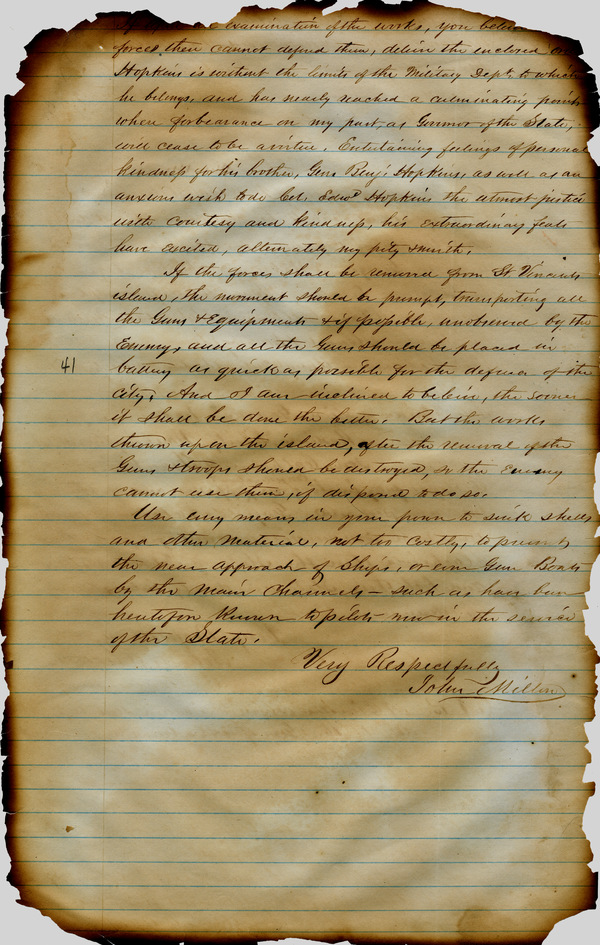 examination of the works, you
forces there cannot defend them, deliver the enclosed
Hopkins is without the limits of the Military Dept. to which
he belongs, and has nearly reached a culminating point
where forbearance on my part, as Governor of the State,
will cease to be a virtue. Entertaining feelings of personal
kindness for his brother, Genl Benj. Hopkins, as well as an
anxious wish to do Col. Edwd Hopkins the utmost justice
with courtesy and kindness, his extraordinary feats
have excited, alternately my pity & mirth.
If the forces shall be removed from St. Vincents
island, the movement should be prompt, transporting all
the Guns & Equipments & if possible, unobserved by the
Enemy, and all the Guns should be placed in
battery as quick as possible for the defense of the
41
city, And I am inclined to believe, the sooner
it shall be done the better. But the works
thrown up on the island, after the removal of the
Guns & troops should be destroyed, so the Enemy
cannot use them, if disposed to do so.
Use every means in your power to sink shells
and other material, not too costly, to prevent
the near approach of Ships, or even Gun Boats
by the main Channels – such as have been
heretofore known to pilots now in the service
of the State.
Very Respectfully
John Milton